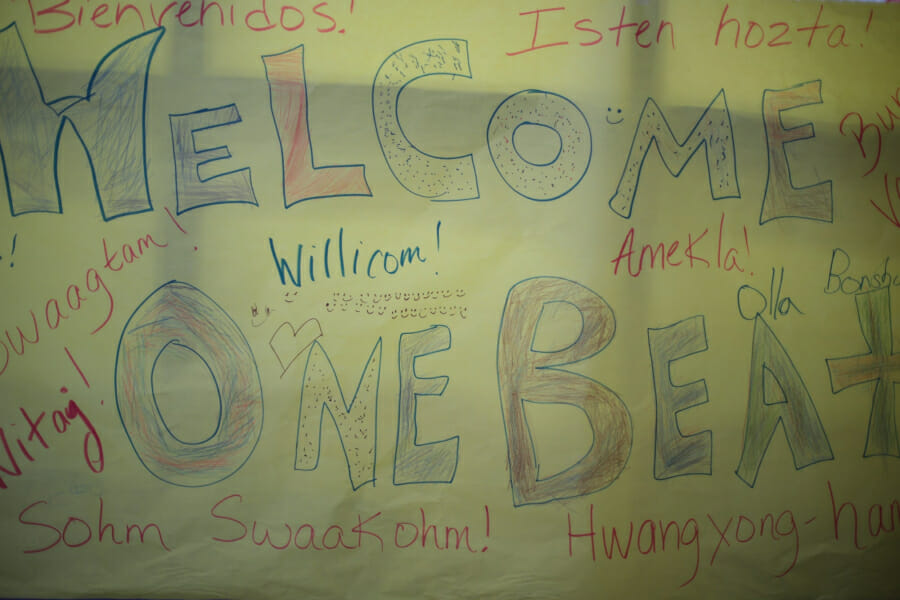 Bienvenidos!
Isten hozta!
WELCOME
Willicom!
Amekla!
Olla
Vitaj!
ONE BEAt
Sohm Swaakohm!
Hwangyong-han